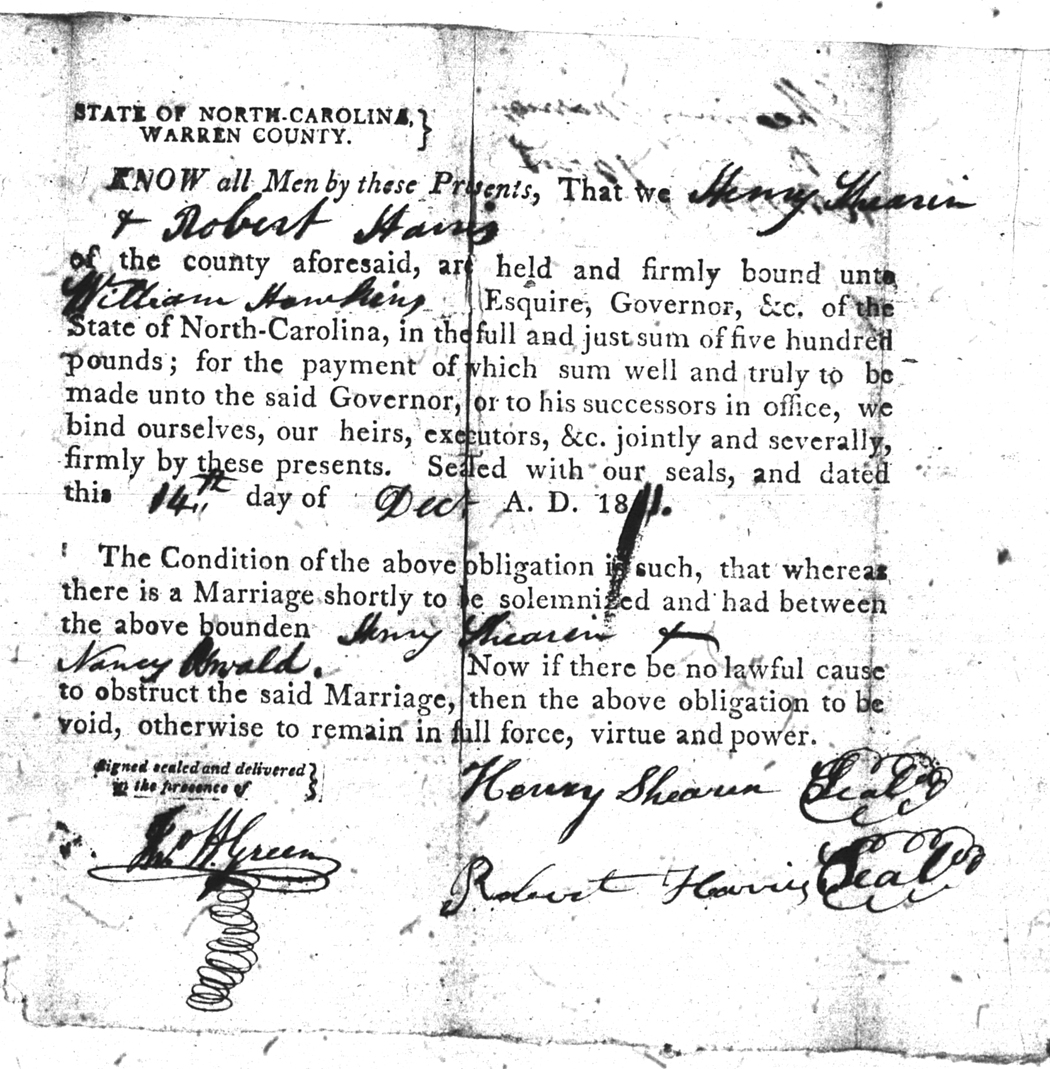 STATE OF NORTH-CAROLINA,
WARREN COUNTY.
KNOW all Men by these Presents, That we Henry Shearin
& Robert Harris
of the county aforesaid, are held and firmly bound unto
William Hawkins Esquire, Governor, &c. of the
State of North-Carolina, in the full and just sum of five hundred
pounds; for the payment of which sum well and truly to be
made unto the said Governor, or to his successors in office, we
bind ourselves, our heirs, executors, &c. jointly and severally,
firmly by these presents. Sealed with our seals, and dated
this 14th day of Decr A. D. 1811.
The Condition of the above obligation is such, that whereas
there is a Marriage shortly to be solemnized and had between
the above bounden Henry Shearin &
Nancy Oswald. Now if there be no lawful cause
to obstruct the said Marriage, then the above obligation to be
void, otherwise to remain in full force, virtue and power.
Signed sealed and delivered
in the presence of
Henry Shearin Seal
Jno H. Green
Robert Harris Seal